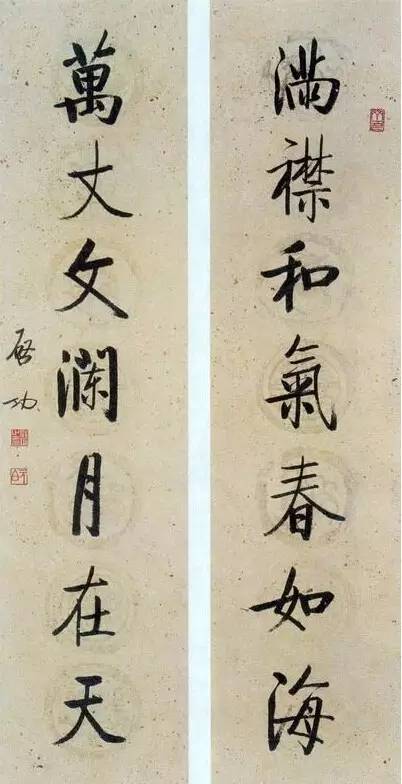 满襟和氣春如海
萬丈文澜月在天
启功